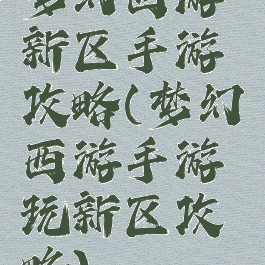 梦幻西游
新区手游
攻略(梦幻
西游手游
玩新区攻
略)